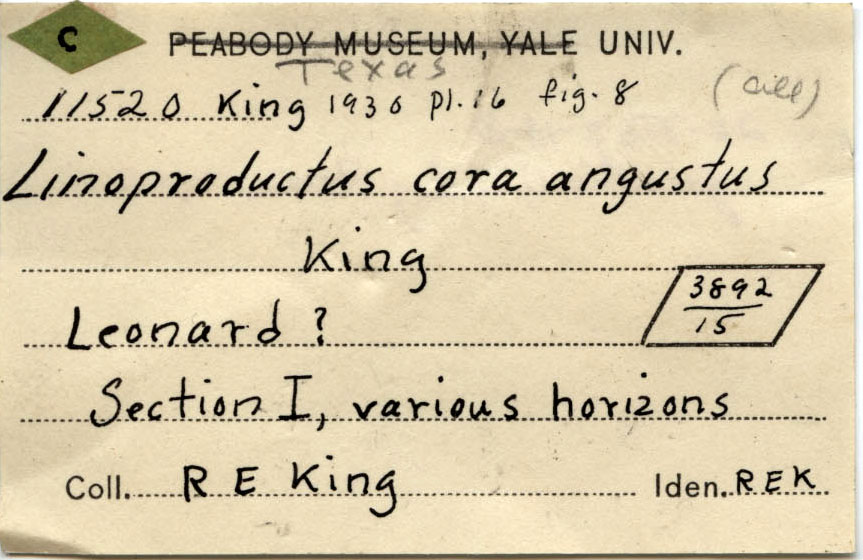 C
PEABODY MUSEUM, YALE UNIV.
Texas
11520 King 1930 pl. 16 fig. 8 (ill)
Linoproductus cora angustus
King
Leonard ?
3892
15
Section I, various horizons
Coll. R E King Iden. REK